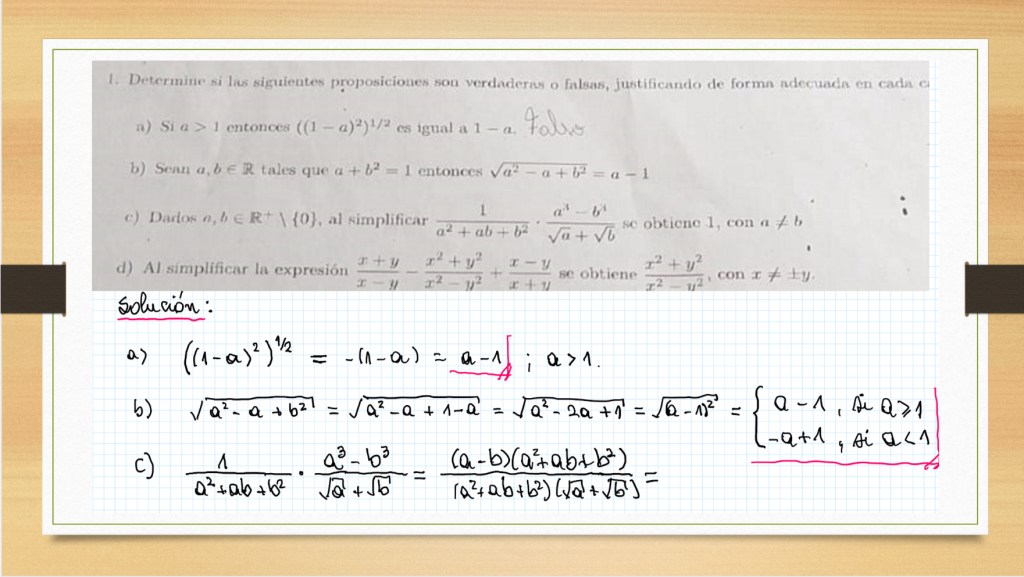 1. Determine si las siguientes proposiciones son verdaderas o falsas, justificando de forma adecuada en cada c
a) Si a > 1 entonces ((1 − a)²)^{1/2} es igual a 1 − a. Falso
b) Sean a, b ∈ ℝ tales que a + b² = 1 entonces √(a² − a + b²) = a − 1
c) Dados a, b ∈ ℝ⁺ \ {0}, al simplificar 1/(a² + ab + b²) · (a³ − b³)/(√a + √b) se obtiene 1, con a ≠ b
d) Al simplificar la expresión (x + y)/(x − y) − (x² + y²)/(x² − y²) + (x − y)/(x + y) se obtiene (x² + y²)/(x² − y²), con x ≠ ±y.
Solución:
a) ((1-a)²)^{1/2} = -(1-a) = a-1 ; a>1.
b) √(a²-a+b²) = √(a²-a+1-a) = √(a²-2a+1) = √((a-1)²) = { a-1, si a⩾1
-a+1, si a<1
c) 1/(a²+ab+b²) · (a³-b³)/(√a+√b) = (a-b)(a²+ab+b²)/((a²+ab+b²)(√a+√b)) =